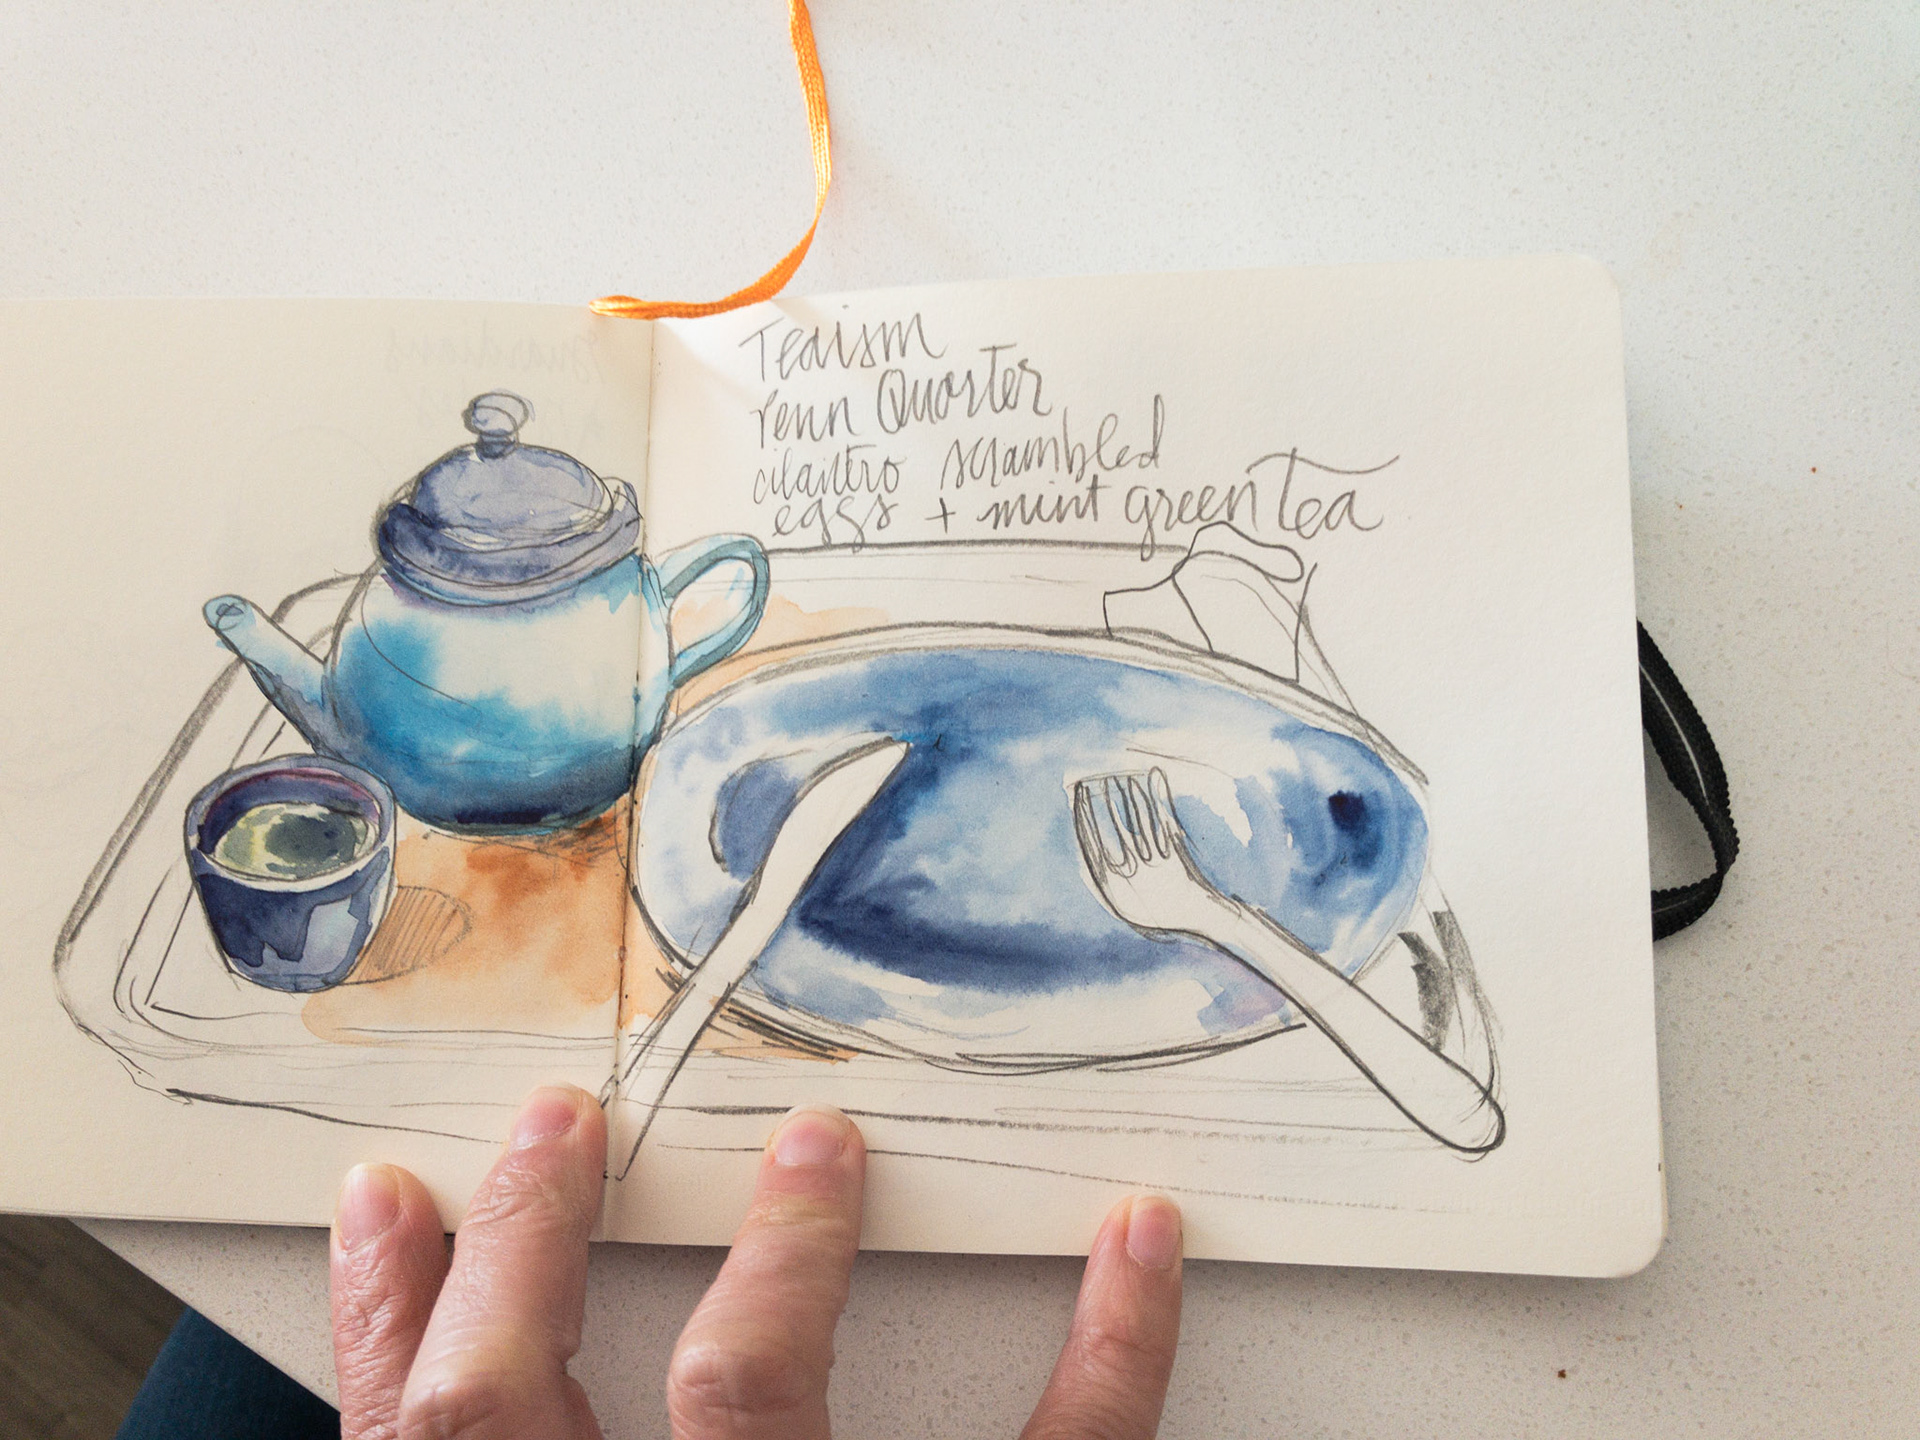 Teaism
Penn Quarter
cilantro scrambled
eggs + mint green Tea